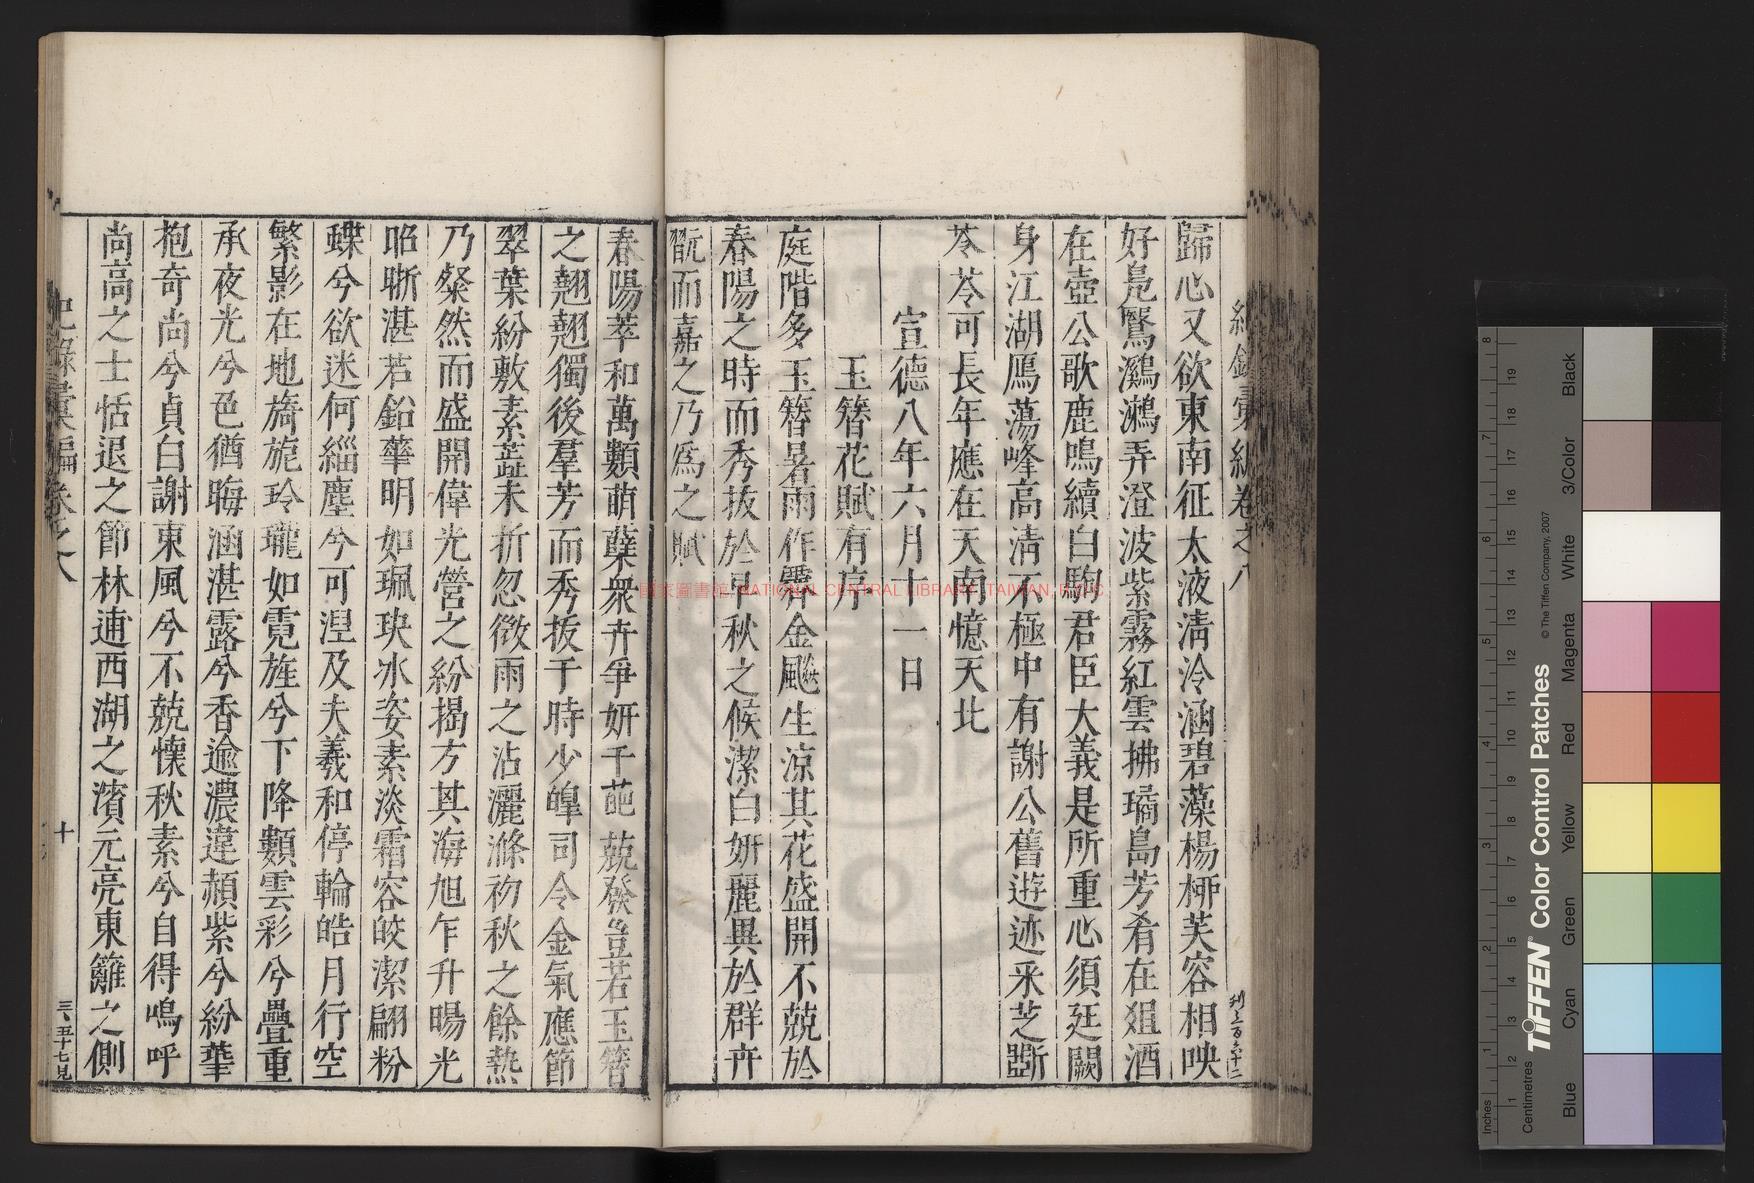 歸心又欲東南征太液清泠涵碧藻楊栁芙容相映
好鳬鷖鸂鶒弄澄波紫霧紅雲拂璚島芳肴在爼酒
在壺公歌鹿鳴續白駒君臣大義是所重心須廷闕
身江湖鴈蕩峰高清不極中有謝公舊遊迹采芝斸
苓苓可長年應在天南憶天北
宣德八年六月十一日
玉簪花賦有序
庭階多玉簪暑雨作霽金颷生凉其花盛開不兢於
春陽之時而秀抜於早秋之候潔白妍麗異於群卉
翫而嘉之乃爲之賦
春陽萃和萬類萌蘖衆卉爭妍千葩兢發豈若玉簪
之翹翹獨後羣芳而秀抜于時少皥司令金氣應節
翠葉紛敷素蘂未折忽微雨之沾灑滌初秋之餘熱
乃粲然而盛開偉光瑩之紛揭方其海旭乍升暘光
昭晣湛若鉛華明如珮玦冰姿素淡霜容皎潔翩粉
蝶兮欲迷何緇塵兮可湼及夫羲和停輪皓月行空
繁影在地旖旎玲瓏如霓旌兮下降類雲彩兮疊重
承夜光兮色猶晦涵湛露兮香逾濃違頳紫兮紛華
抱奇尚兮貞白謝東風兮不兢懐秋素兮自得嗚呼
尚高之士恬退之節林逋西湖之濱元亮東籬之側
卷之八
十
三、五十七見
國家圖書館 NATIONAL CENTRAL LIBRARY, TAIWAN, R.O.C
Inches
Centimetres
TIFFEN® Color Control Patches
© The Tiffen Company, 2007
Blue
Cyan
Green
Yellow
Red
Magenta
White
3/Color
Black